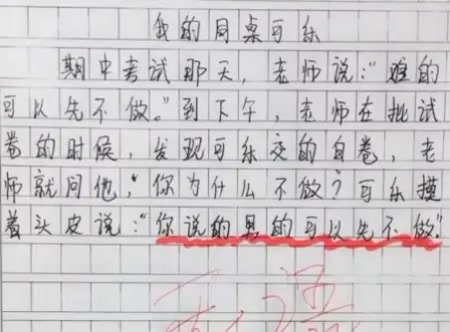 我的同桌可乐
期中考试那天，老师说：“难的
可以先不做。”到下午，老师在批试
卷的时候，发现可乐交的白卷，老
师就问他，“你为什么不做？可乐摸
着头皮说：“你说的男的可以先不做。”